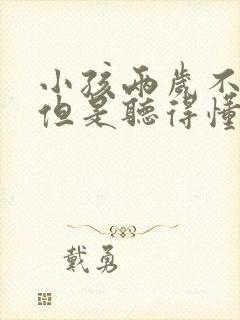 小孩兩歲不
但是聽得懂
戴勇